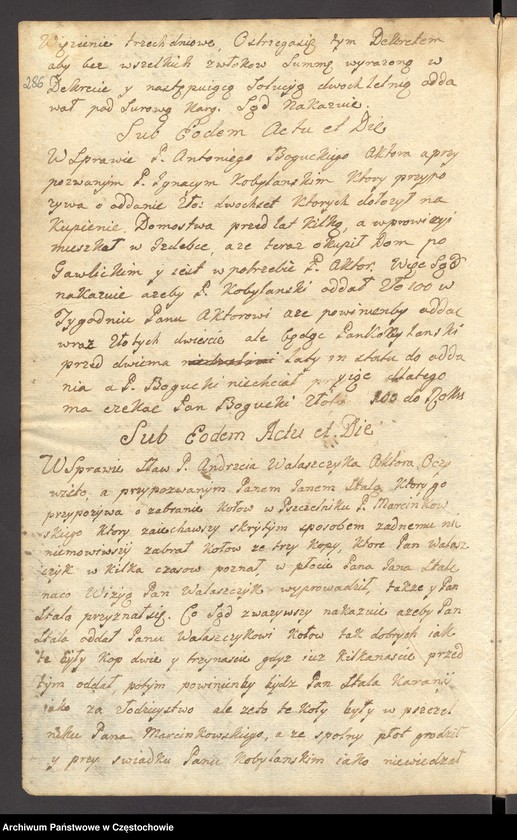 Więzienie trzechdniowe, Ostrzegasię tym Dekretem
aby bez wszelkich zwłokow Summę wyrazoną w
286
Dekrecie y następuiącą Solucyą dwochletnią odda
wał pod surową karą. Sąd Nakazuie.
Sub Eodem Actu et Die
W Sprawie P. Antoniego Boguckiego Aktora a przy
pozwanym P. Ignacym Kobylanskim Ktory przypo
zywa o oddanie Zło: dwochset Ktorych dołozył na
Kupienie Domostwa przed lat kilką, a w prowizyi
mieszkał w Izdebce, a ze teraz okupił Dom po
Gawlickim y iest w potrzebie P. Aktor. Więc Sąd
nakazuie azeby P. Kobylanski oddał Zło 100 w
Tygodniu Panu Aktorowi aze powinienby oddac
wraz Złotych dwieście ale będąc Pan Kobylanski
przed dwiema laty in statu do odda
nia a P. Bogucki niechciał dlatego
ma czekac Pan Bogucki Złot 100 do Roku
Sub Eodem Actu et Die
W Sprawie Sław P. Andrzeia Walaszczyka Aktora Oczy
wisto, a przypozwanym Panem Janem Stalą Ktorygo
przypozywa o zabranie Kołow w Pszczelniku P. Marcinkow
skiego Ktory zaiechawszy skrytym sposobem zadnemu nic
niemowiwszy zabrał Kołow ze trzy Kopy, Ktore Pan Walasz
czyk w kilka czasow poznał w płocie Pana Jana Stale
naco Wizyą Pan Walaszczyk wyprowadził, takze y Pan
Stala przyznał się. Co Sąd zwazywszy nakazuie azeby Pan
Stala oddał Panu Walaszczykowi Kołow tak dobrych iak
te były Kop dwie y trzynascie gdyz iuz kilkanascie przed
tym oddał, potym powinienby bydz Pan Stala Karany
iako za złodzieystwo ale zeto te Koły były w pszczel
niku Pana Marcinkowskiego, a ze spolny płot grodził
y przy swiadku Panu Kobylanskim iako niewiedział
Archiwum Państwowe w Częstochowie